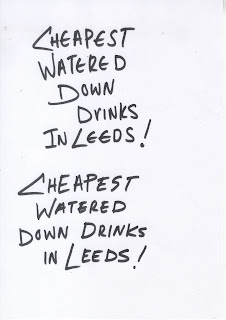 CHEAPEST
WATERED
DOWN
DRINKS
IN LEEDS!
CHEAPEST
WATERED
DOWN DRINKS
IN LEEDS!